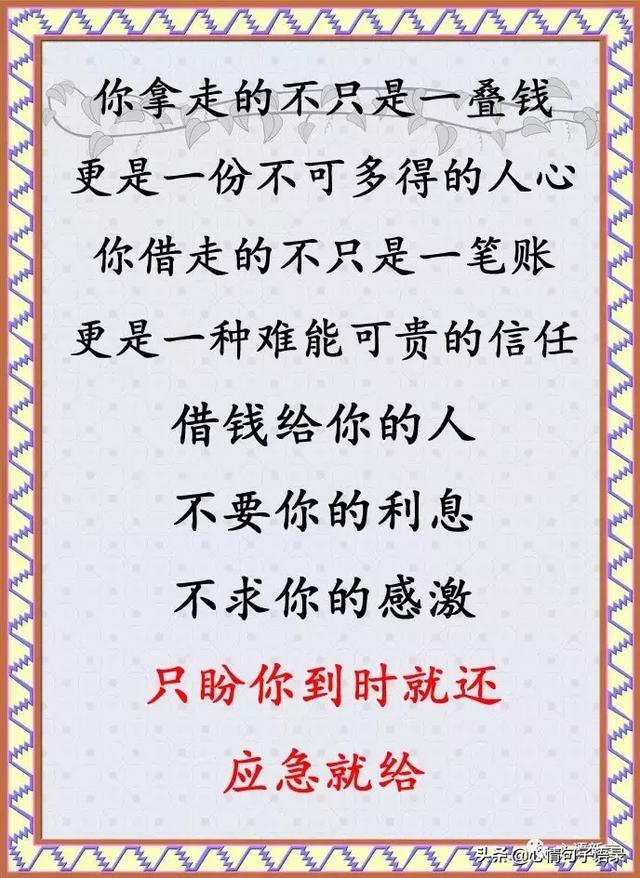 你拿走的不只是一叠钱
更是一份不可多得的人心
你借走的不只是一笔账
更是一种难能可贵的信任
借钱给你的人
不要你的利息
不求你的感激
只盼你到时就还
应急就给
头条@心情句子语录